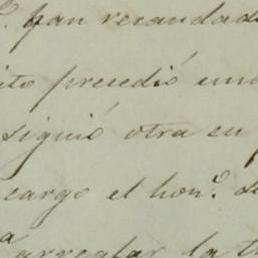 han recaudad
ito presedió una
siguió otra en
cargo el hon.e de
arreglar la